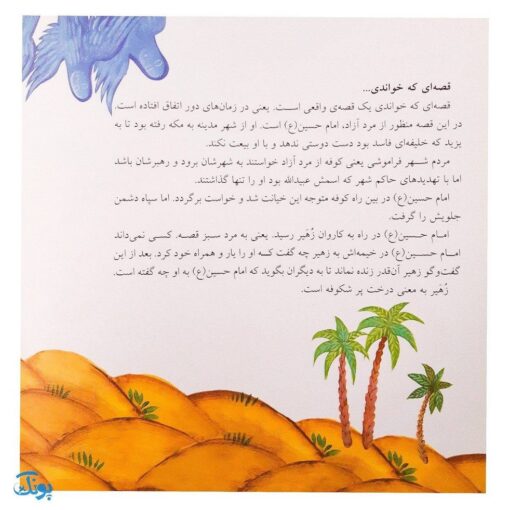 قصه‌ای که خواندی...
قصه‌ای که خواندی یک قصه‌ی واقعی است. یعنی در زمان‌های دور اتفاق افتاده است.
در این قصه منظور از مرد آزاد، امام حسین(ع) است. او از شهر مدینه به مکه رفته بود تا به
یزید که خلیفه‌ای فاسد بود دست دوستی ندهد و با او بیعت نکند.
مردم شهر فراموشی یعنی کوفه از مرد آزاد خواستند به شهرشان برود و رهبرشان باشد
اما با تهدیدهای حاکم شهر که اسمش عبیدالله بود او را تنها گذاشتند.
امام حسین(ع) در بین راه کوفه متوجه این خیانت شد و خواست برگردد. اما سپاه دشمن
جلویش را گرفت.
امام حسین(ع) در راه به کاروان زُهَیر رسید. یعنی به مرد سبز قصه. کسی نمی‌داند
امام حسین(ع) در خیمه‌اش به زهیر چه گفت که او را یار و همراه خود کرد. بعد از این
گفت‌وگو زهیر آن‌قدر زنده نماند تا به دیگران بگوید که امام حسین(ع) به او چه گفته است.
زُهَیر به معنی درخت پر شکوفه است.
پونک